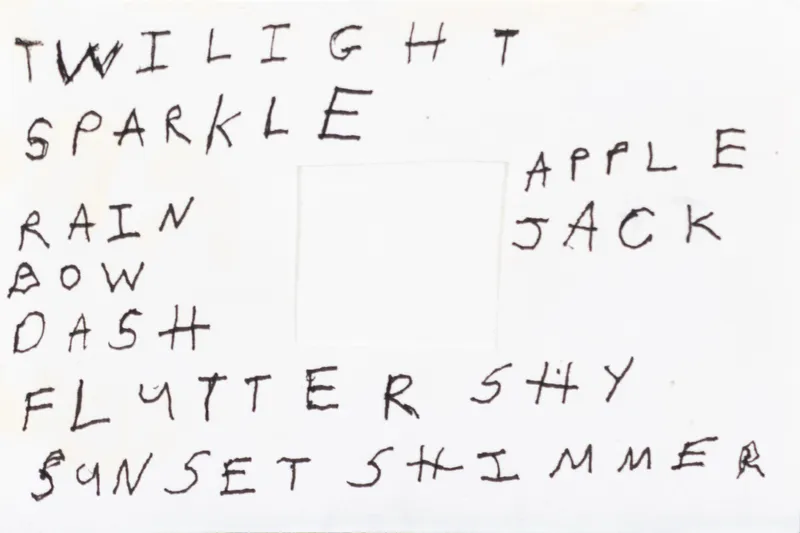 TWILIGHT
SPARKLE
APPLE
JACK
RAIN
BOW
DASH
FLUTTER SHY
SUNSET SHIMMER